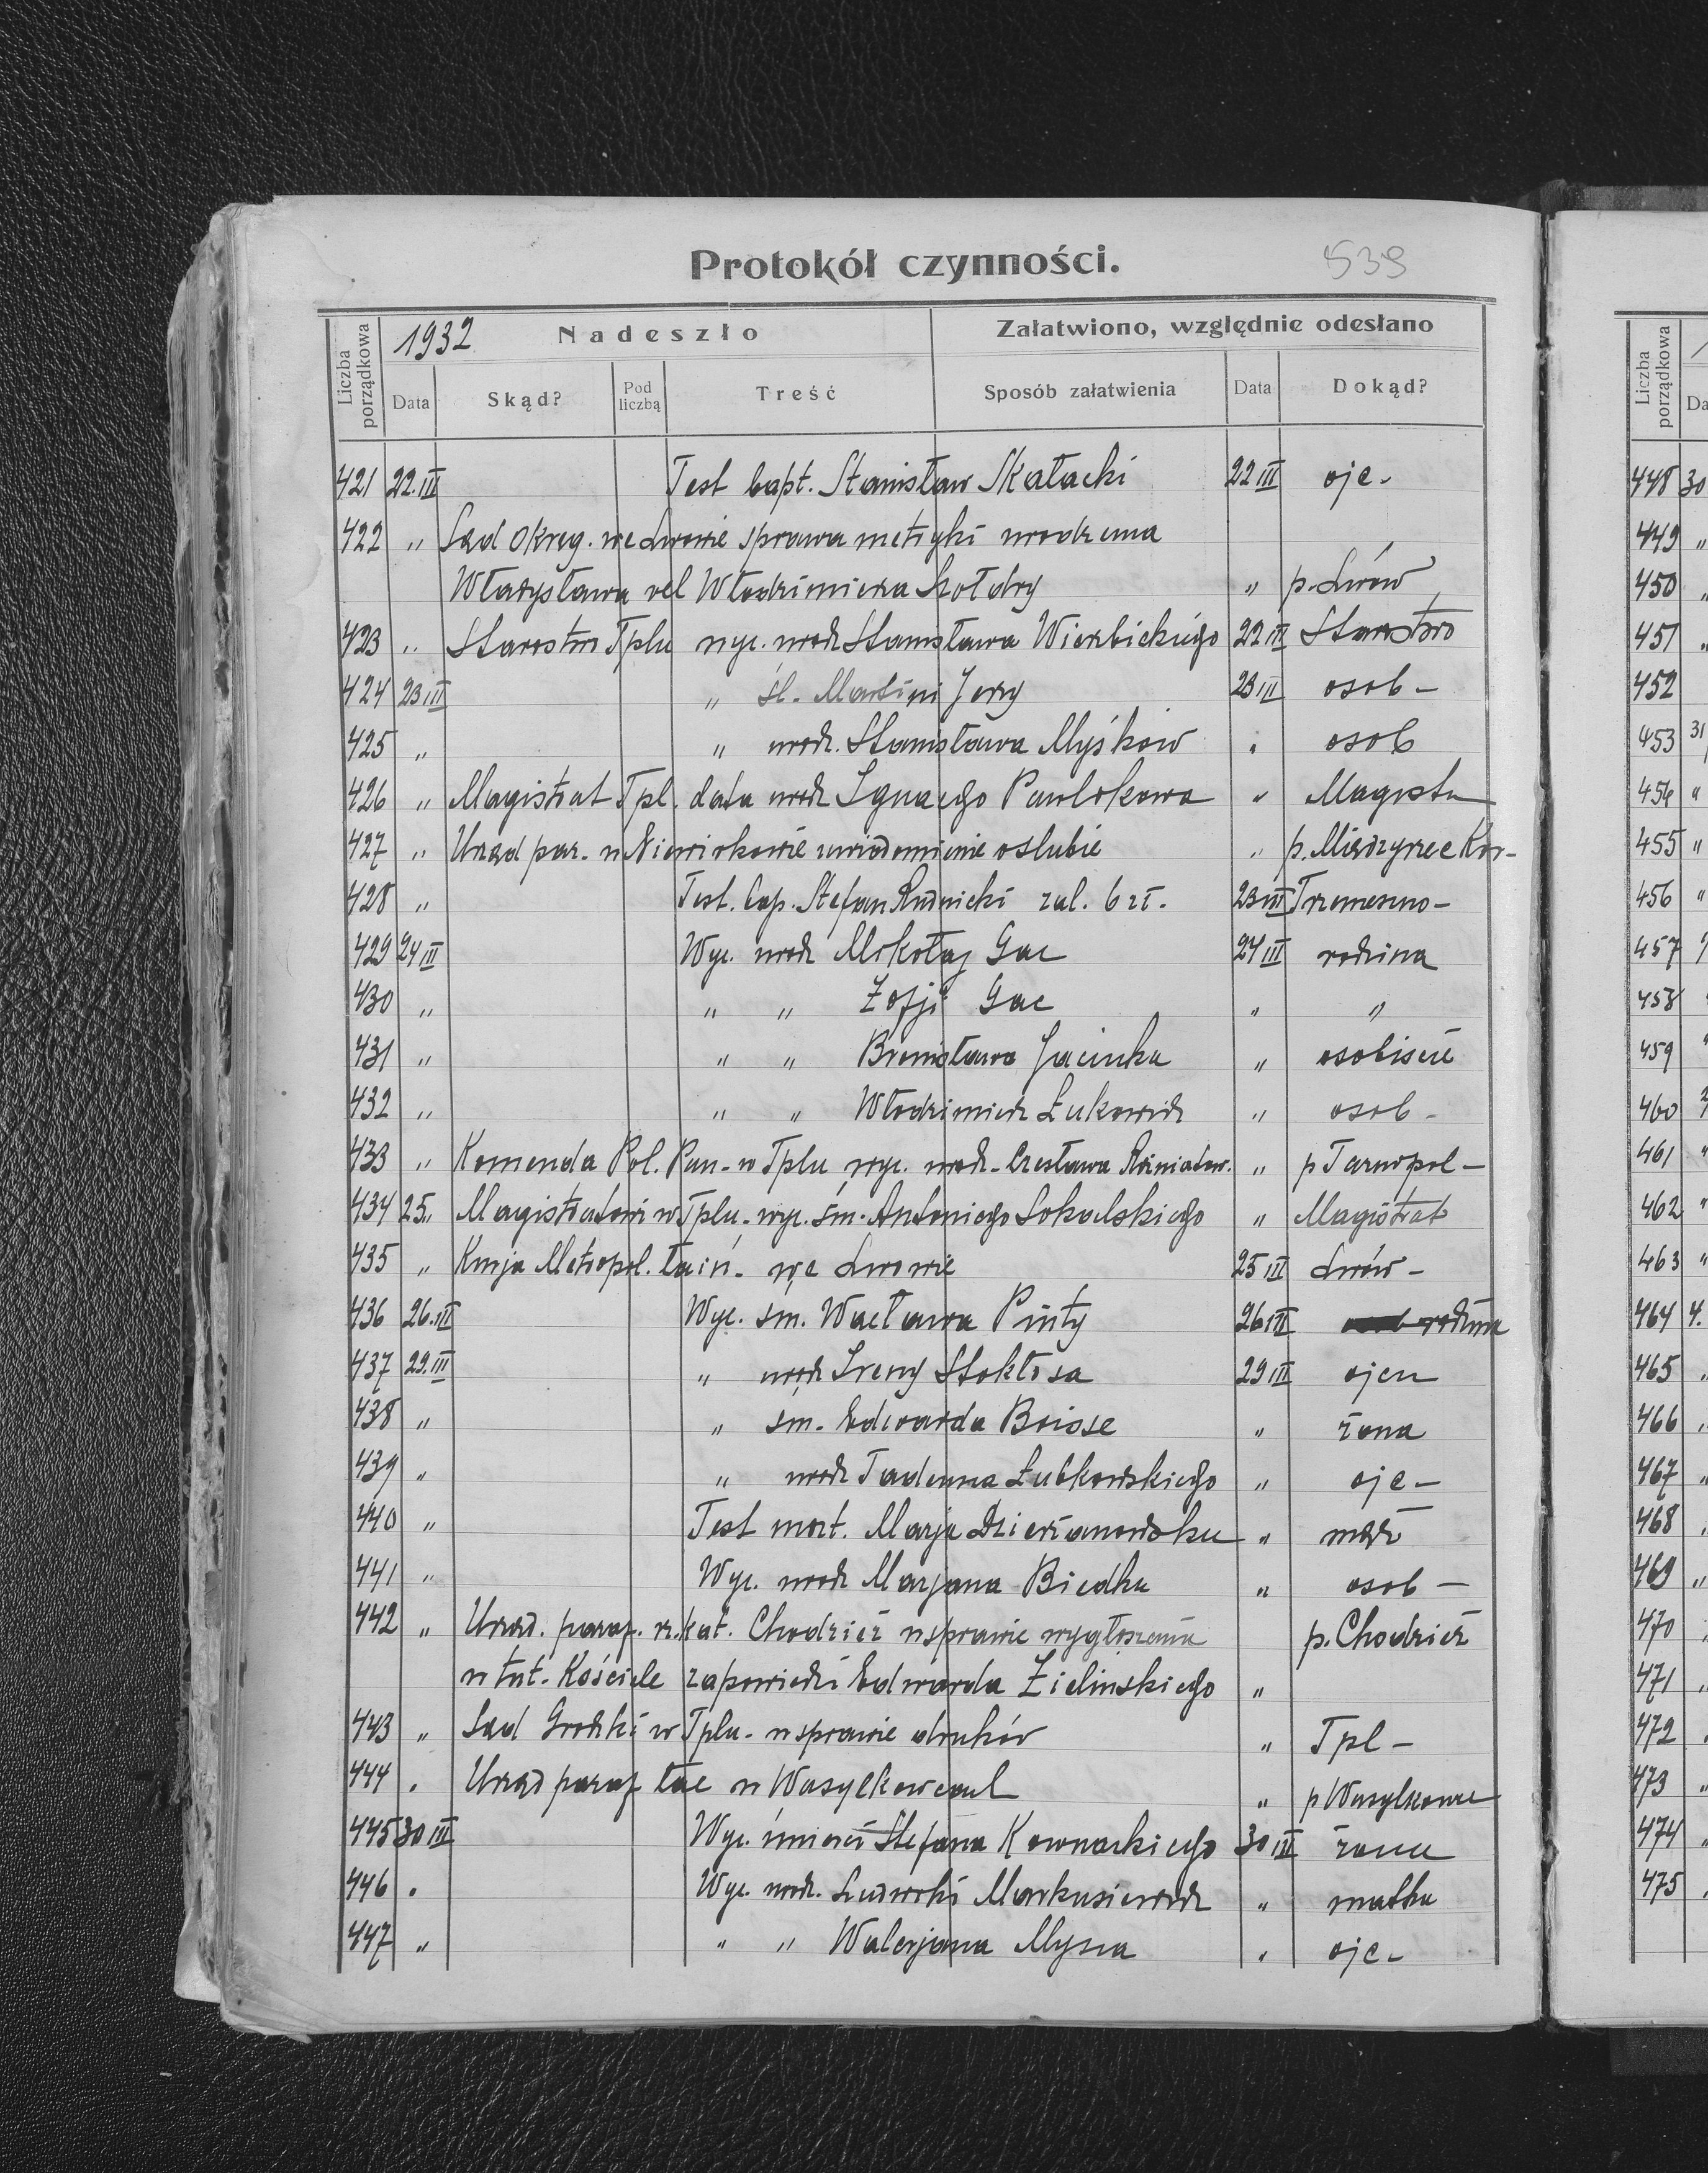 Protokół czynności.
539
Liczba porządkowa
1932
Nadeszło
Załatwiono, względnie odesłano
Data
Skąd?
Pod liczbą
Treść
Sposób załatwienia
Data
Dokąd?
421 22.III Test bapt. Stanisław Skałacki 22 III ojc-
422 " Sąd okręg. we Lwowie sprawa metryki urodzenia
Władysława vel Włodzimierza Kołdry " p. Lwów
423 " Starostwo Tplu wyc. urodz Stanisława Wierzbickiego 22 III Starostwo
424 23 III " śl. Martini Jerzy 23 III osob-
425 " " urodz. Stanisława Myśków " osob
426 " Magistrat Tpl. data urodz Ignacego Pawlokowa " Magistr
427 " Urząd par. w Niewirkowie zawiadomienie o ślubie " p. Międzyrzec Kor-
428 " Test. bap. Stefan Rudnicki zal. 6 zł. 23 III Trzemeszno-
429 24 III Wyc. urodz Mikołaj Gac 24 III rodzina
430 " " " Zofji Gac " "
431 " " " Bronisława Jacinka " osobiście
432 " " " Włodzimierz Łukowicz " osob-
433 " Komenda Pol. Pań- w Tplu wyc. urodz- Czesława " p Tarnopol-
434 25 " Magistratowi w Tplu- wyc. śm. Antoniego Sokalskiego " Magistrat
435 " Kurja Metropol. łaciń. we Lwowie 25 III Lwów-
436 26.III Wyc. śm. Wacława Pinty 26 III rodzina
437 29.III " urodz Ireny Stokłosa 29 III ojcu
438 " " śm. Edwarda Boisse " żona
439 " " urodz Tadeusza Łubkowskiego " ojc-
440 " Test mort. Marja Dzierżanowska " mąż
441 " Wyc. urodz Marjana Biedka " osob-
442 " Urząd. paraf. rz. kat. Chodzież w sprawie wygłoszenia p. Chodzież
w tut. Kościele zapowiedzi Edwarda Zielińskiego "
443 " Sąd Grodzki w Tplu- w sprawie druków " Tpl-
444 " Urząd paraf łac w Wasylkowcach " p Wasylkowce
445 30 III Wyc. śmierci Stefana Kownackiego 30 III żona
446 " Wyc. urodz. Ludwiki Markusiewicz " matka
447 " " " Walerjana Mysza " ojc-
Liczba porządkowa
448 30
449 "
450 "
451 "
452
453 31
454 "
455 "
456 "
457
458
459
460
461 "
462 "
463 "
464 4.
465
466
467 "
468
469 "
470
471
472
473 "
474 "
475